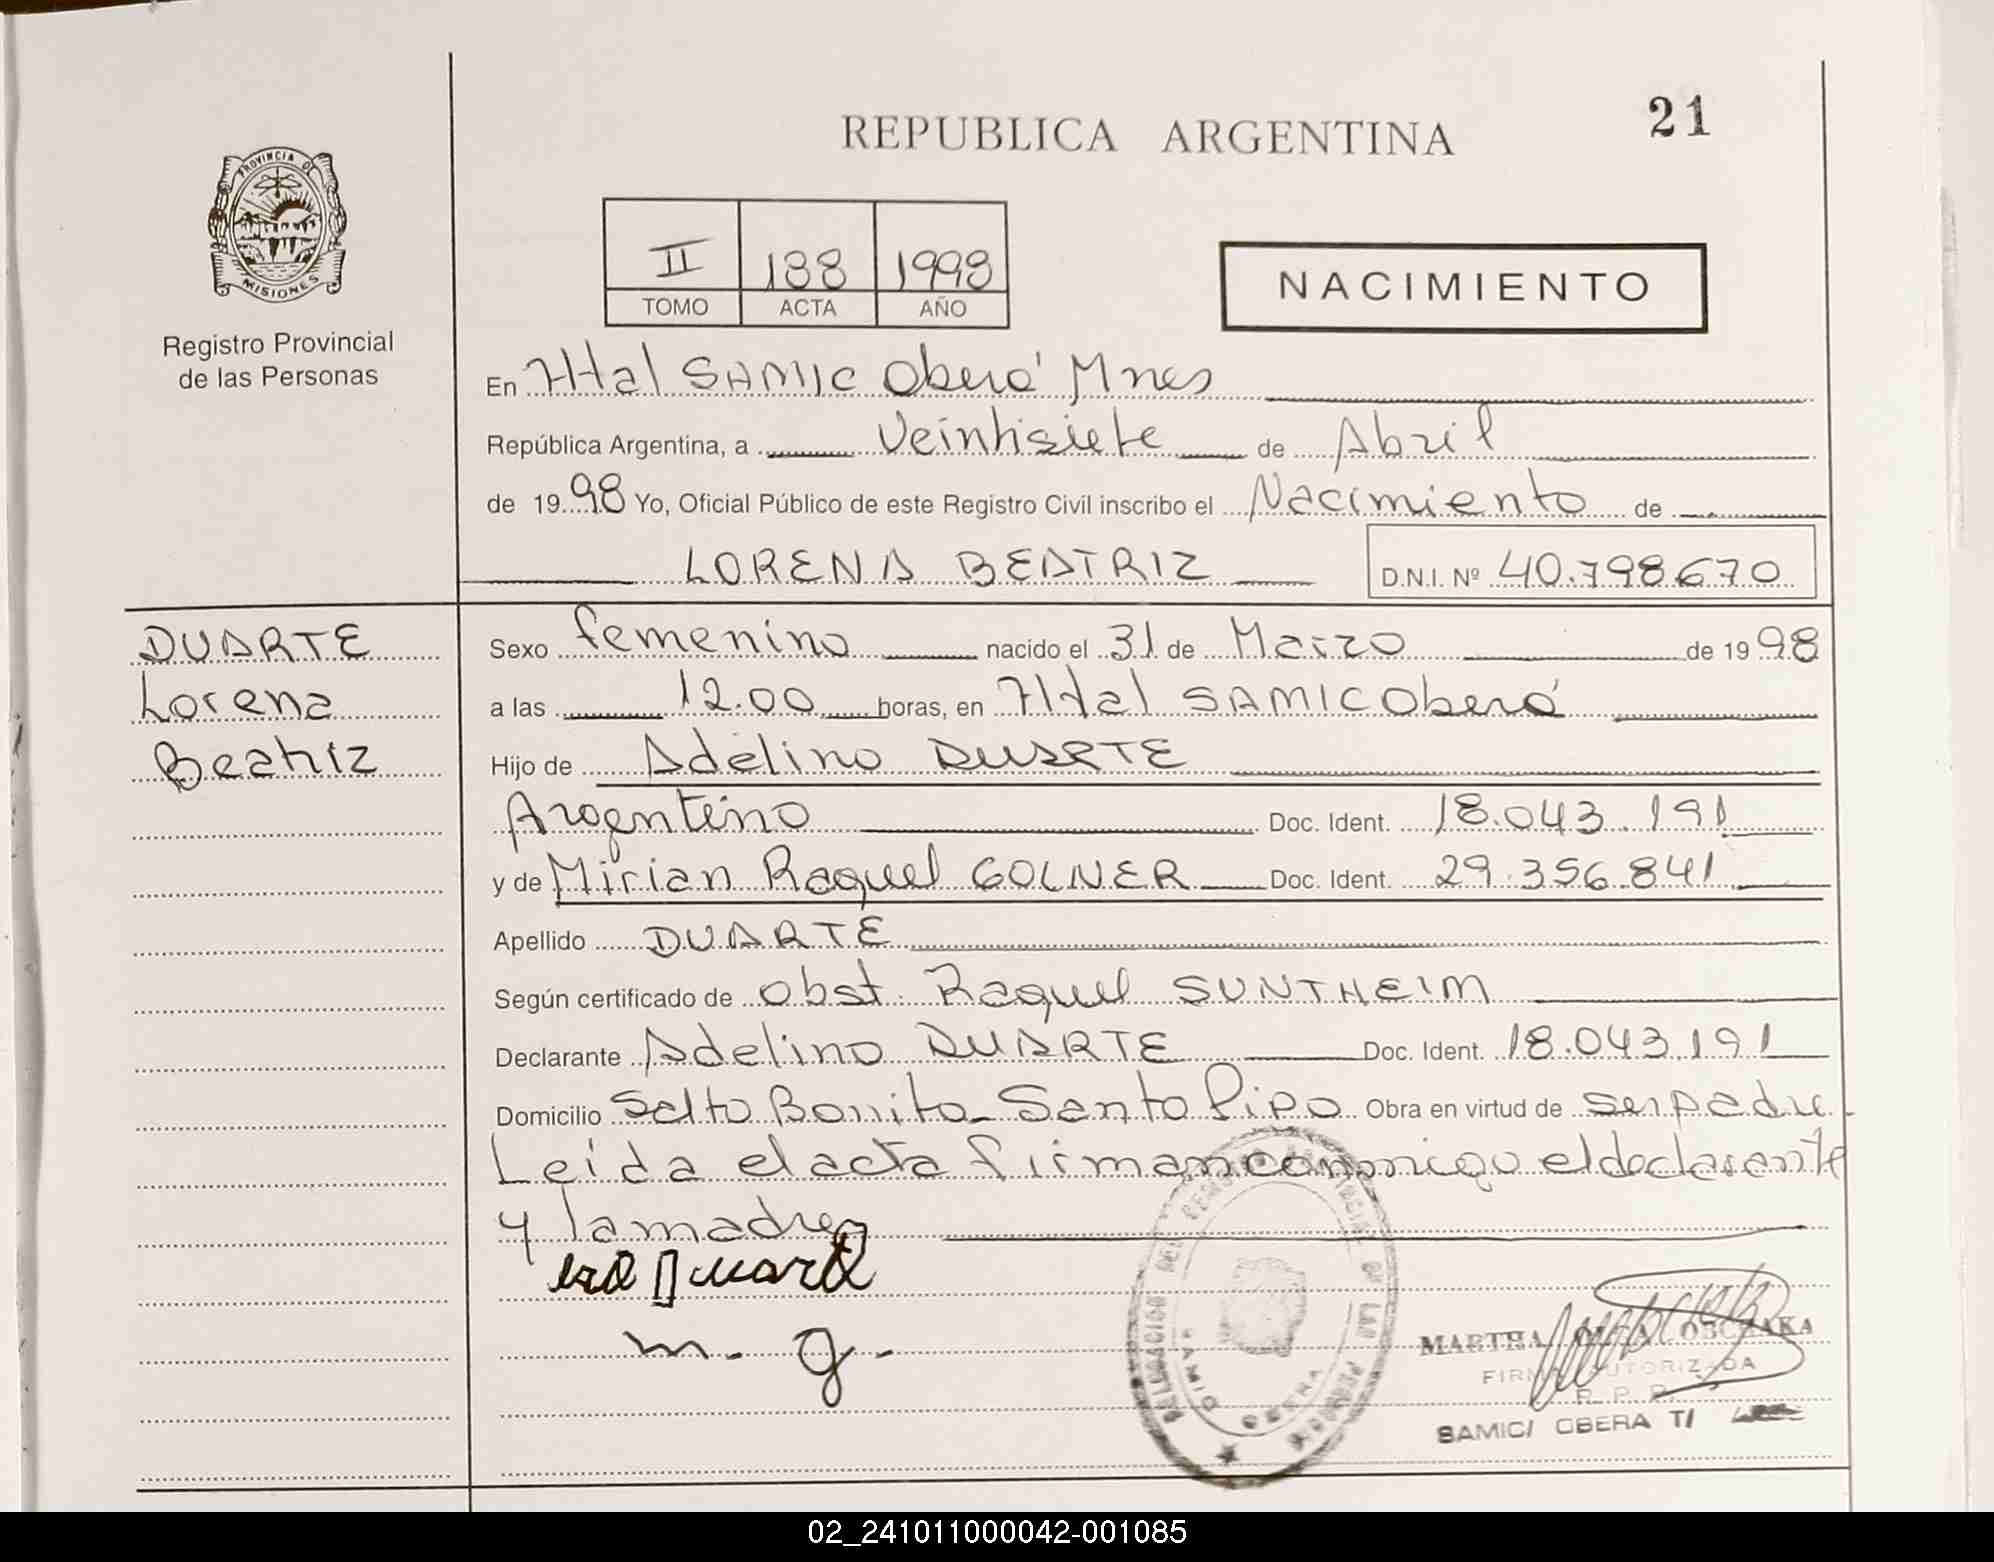 REPUBLICA ARGENTINA
21
PROVINCIA DE
MISIONES
Registro Provincial
de las Personas
II 188 1998
TOMO ACTA AÑO
NACIMIENTO
En Htal SAMIC Oberá Mnes
República Argentina, a Veintisiete de Abril
de 1998 Yo, Oficial Público de este Registro Civil inscribo el Nacimiento de
LORENA BEATRIZ D.N.I. Nº 40.798.670
DUARTE
Lorena
Beatriz
Sexo femenino nacido el 31 de Marzo de 1998
a las 12.00 horas, en Htal SAMIC Oberá
Hijo de Adelino DUARTE
Argentino Doc. Ident. 18.043.191
y de Mirian Raquel GOLNER Doc. Ident. 29.356.841
Apellido DUARTE
Según certificado de Obst. Raquel SUNTHEIM
Declarante Adelino DUARTE Doc. Ident. 18.043.191
Domicilio Salto Bonito - Santo Pipo Obra en virtud de ser padre.
Leída el acta firman conmigo el declarante
y la madre
m. g.
MARTHA OLGA OSCHAKA
FIRMA AUTORIZADA
R. P. P.
SAMIC/ OBERA T/
02_241011000042-001085